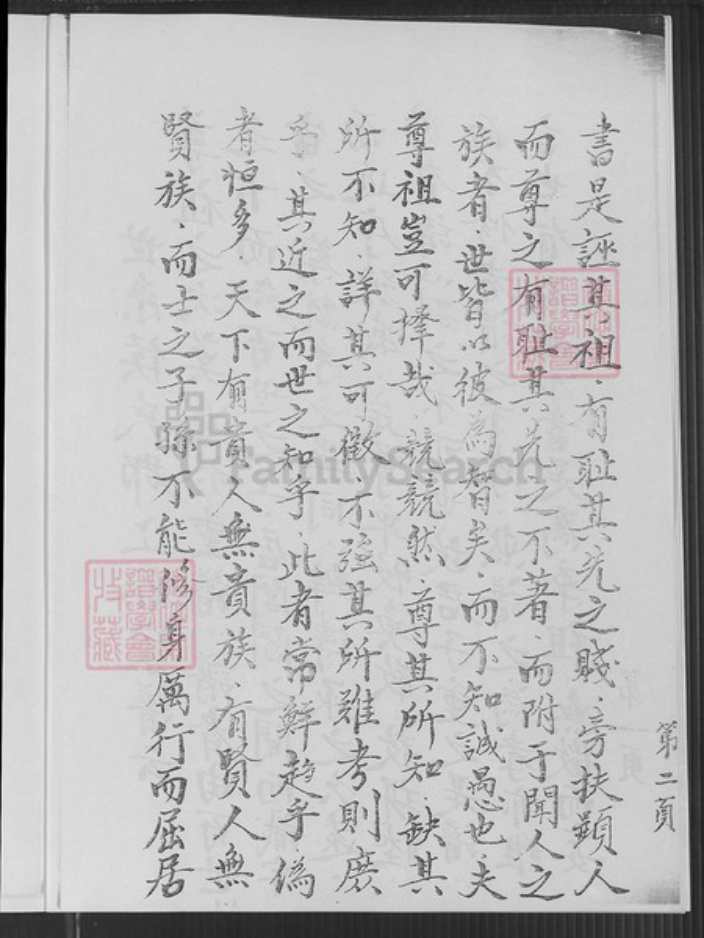 書是誣其祖.有耻其先之賤.旁扶顕人
而尊之有耻其先之不著.而附于聞人之
族者.世皆以彼為智矣.而不知誠愚也.夫
尊祖豈可擇哉.競競然.尊其所知.缺其
所不知.詳其可徵.不強其所難考則庶
乎.其近之而世之知乎.此者常鮮趋乎.偽
者恒多.天下有貴人無貴族.有賢人無
賢族.而士之子孫不能修身厲行而屈居
第二頁
FamilySearch